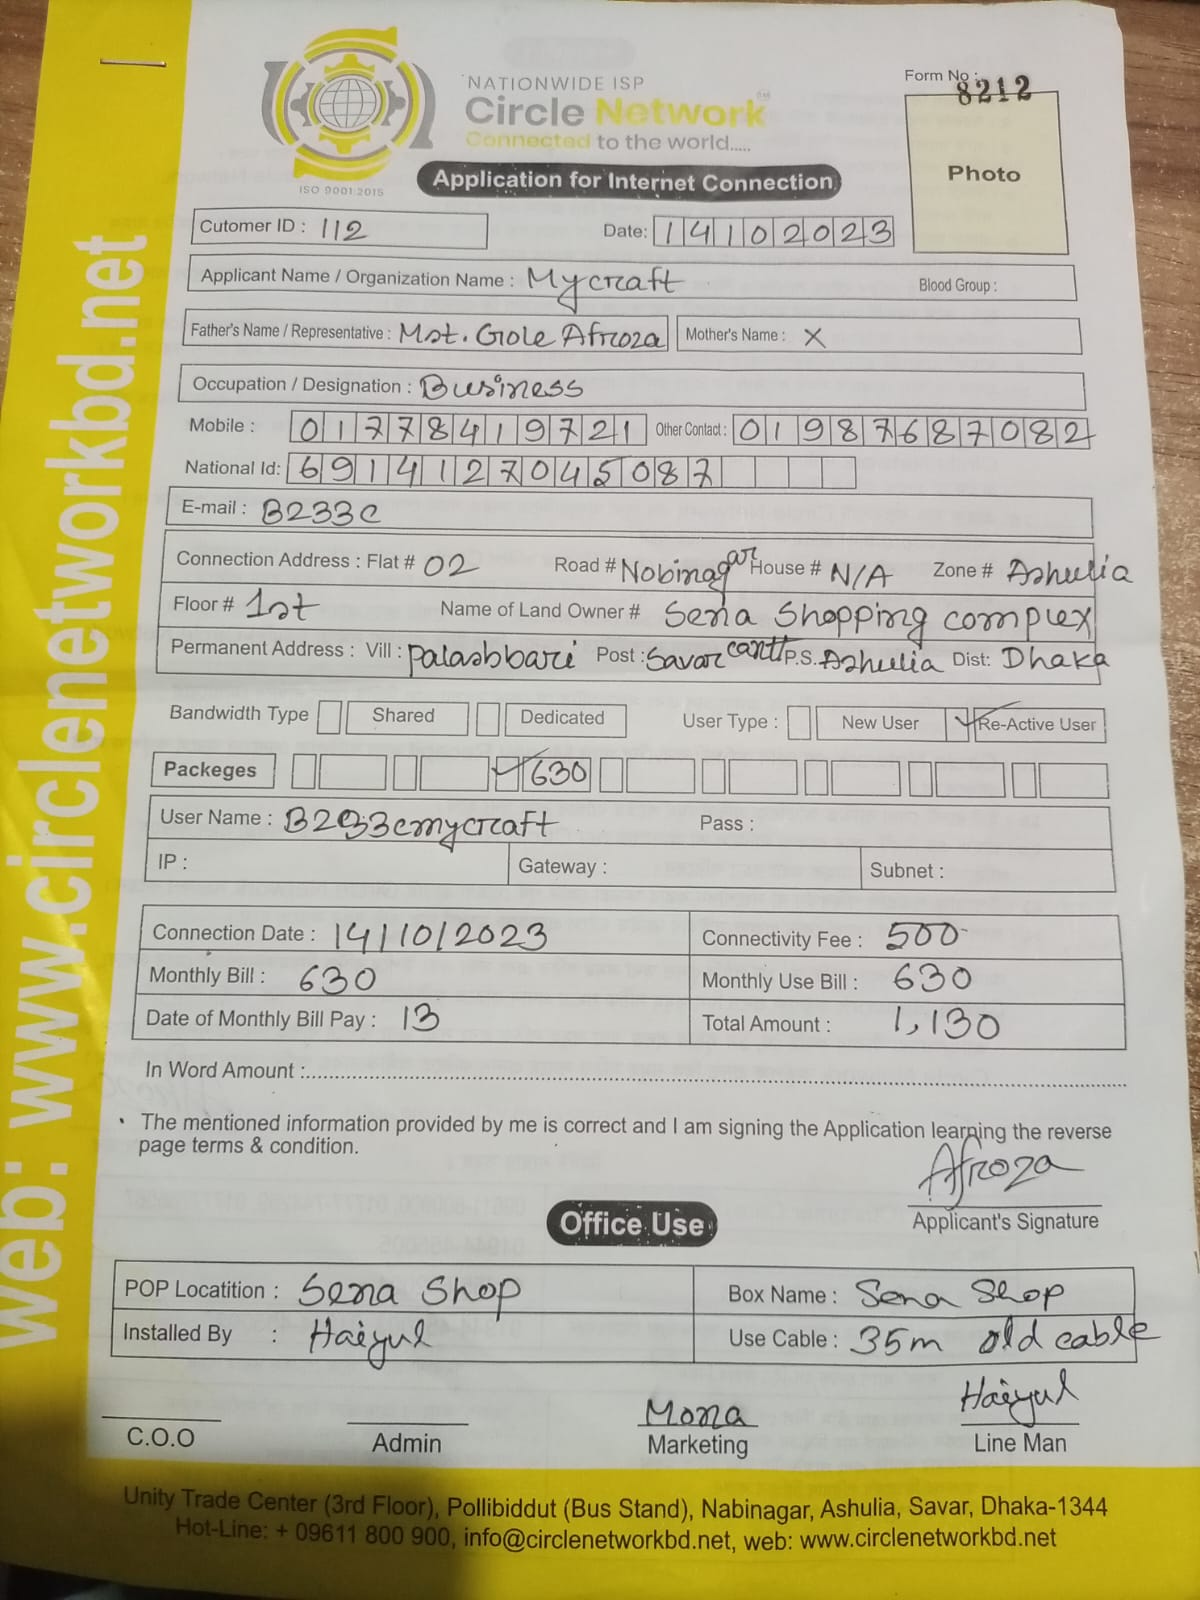 web: www.circlenetworkbd.net
NATIONWIDE ISP
Circle Network
Connected to the world.....
ISO 9001:2015
Form No : 8212
Photo
Application for Internet Connection
Cutomer ID : 112 Date: 14102023
Applicant Name / Organization Name : Mycraft Blood Group :
Father's Name / Representative : Mst. Gole Afroza Mother's Name : X
Occupation / Designation : Business
Mobile : 01778419721 Other Contact : 01987687082
National Id: 6914127045087
E-mail : B233c
Connection Address : Flat # 02 Road # Nobinagar House # N/A Zone # Ashulia
Floor # 1st Name of Land Owner # Sena Shopping complex
Permanent Address : Vill : Palashbari Post : Savar cantt P.S. Ashulia Dist: Dhaka
Bandwidth Type Shared Dedicated User Type : New User ✓ Re-Active User
Packeges ✓ 630
User Name : B233cmycraft Pass :
IP : Gateway : Subnet :
Connection Date : 14/10/2023 Connectivity Fee : 500
Monthly Bill : 630 Monthly Use Bill : 630
Date of Monthly Bill Pay : 13 Total Amount : 1,130
In Word Amount :
• The mentioned information provided by me is correct and I am signing the Application learning the reverse
page terms & condition.
Afroza
Applicant's Signature
Office Use
POP Locatition : Sena Shop Box Name : Sena Shop
Installed By : Haiyul Use Cable : 35m old cable
Mona Haiyul
C.O.O Admin Marketing Line Man
Unity Trade Center (3rd Floor), Pollibiddut (Bus Stand), Nabinagar, Ashulia, Savar, Dhaka-1344
Hot-Line: + 09611 800 900, info@circlenetworkbd.net, web: www.circlenetworkbd.net